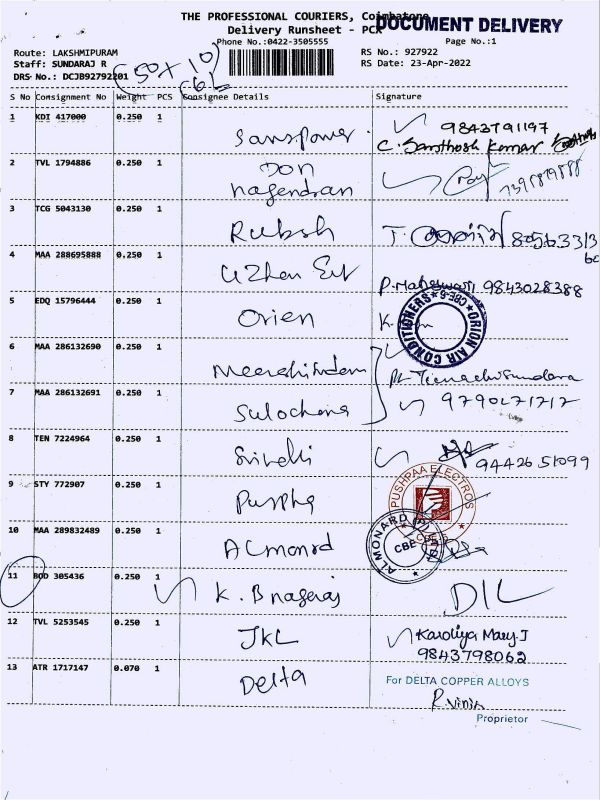 THE PROFESSIONAL COURIERS, Coimbatore
DOCUMENT DELIVERY
Delivery Runsheet - PCX
Phone No.:0422-3505555
Page No.:1
Route: LAKSHMIPURAM
RS No.: 927922
Staff: SUNDARAJ R
RS Date: 23-Apr-2022
DRS No.: DCJB92792201
(50 x 10)
S No Consignment No Weight PCS Consignee Details Signature
1 KDI 417000 0.250 1 Sanspower 9843791197
C. Santhosh Kumar
2 TVL 1794886 0.250 1 Don
nagendran
3 TCG 5043130 0.250 1 Rukesh
4 MAA 288695888 0.250 1
P. Maheswari 9843028388
5 EDQ 15796444 0.250 1 Orien K.
ORION AIR CONDITIONERS CBE-6
6 MAA 286132690 0.250 1
7 MAA 286132691 0.250 1 Sulochana 9790271717
8 TEN 7224964 0.250 1 94426 51099
9 STY 772907 0.250 1 Puspha
PUSHPAA ELECTROS
10 MAA 289832489 0.250 1 ALmonard
ALMONARD CBE
11 BOD 305436 0.250 1 K. Bnagaraj DIL
12 TVL 5253545 0.250 1 JKL Karoliya Mary.J
9843798062
13 ATR 1717147 0.070 1 Delta For DELTA COPPER ALLOYS
R.
Proprietor